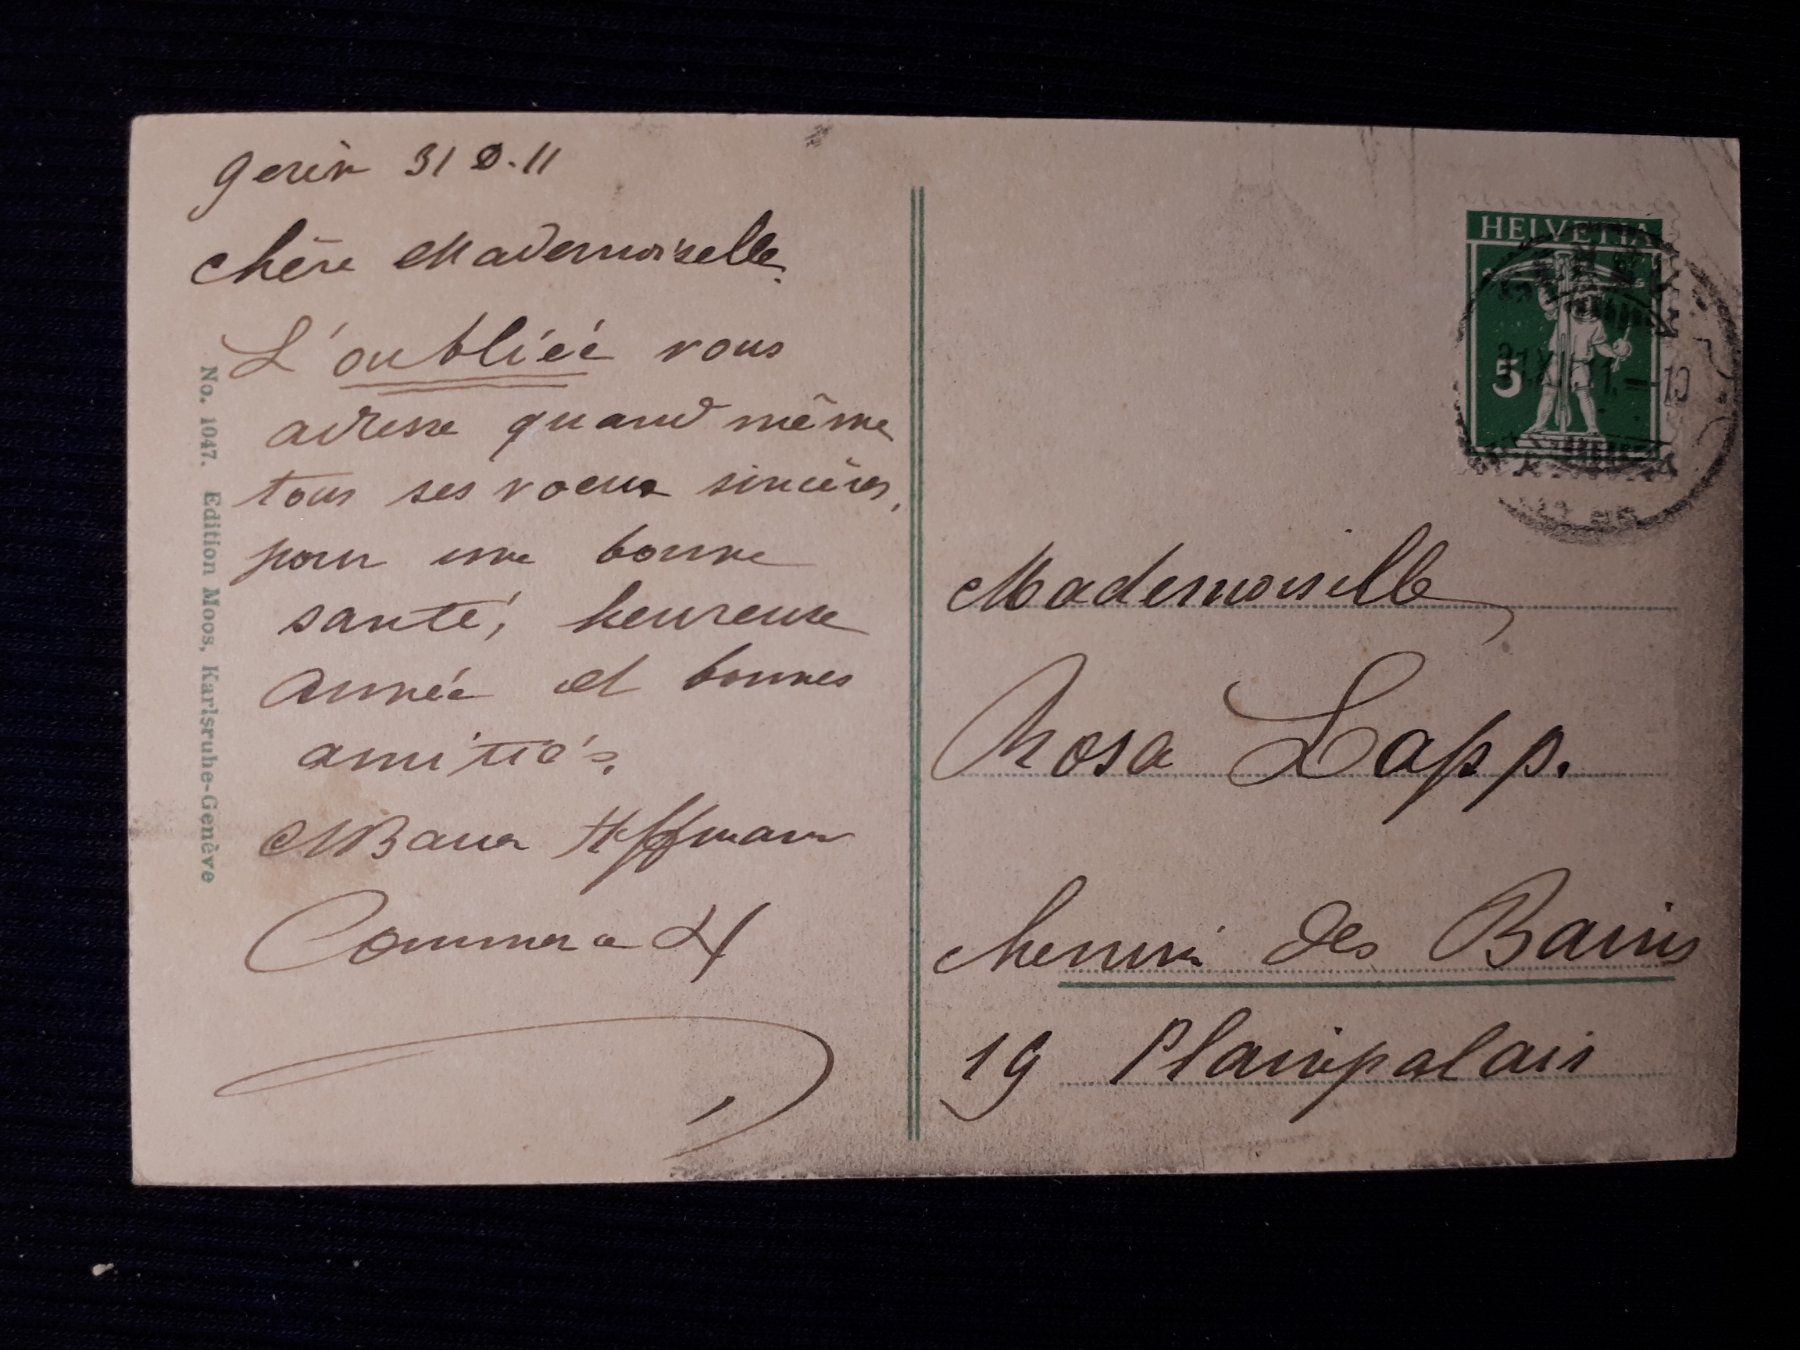 31 D. 11
Chère Mademoiselle
L'oubliée vous
adresse quand même
tous ses voeux sincères,
pour une bonne
santé, heureuse
année et bonnes
amitiés.
Hoffmann
4
No. 1047. Edition Moos, Karlsruhe-Genève
HELVETIA
5
Mademoiselle
Rosa Lapp.
Chemin des Bains
19 Plainpalais